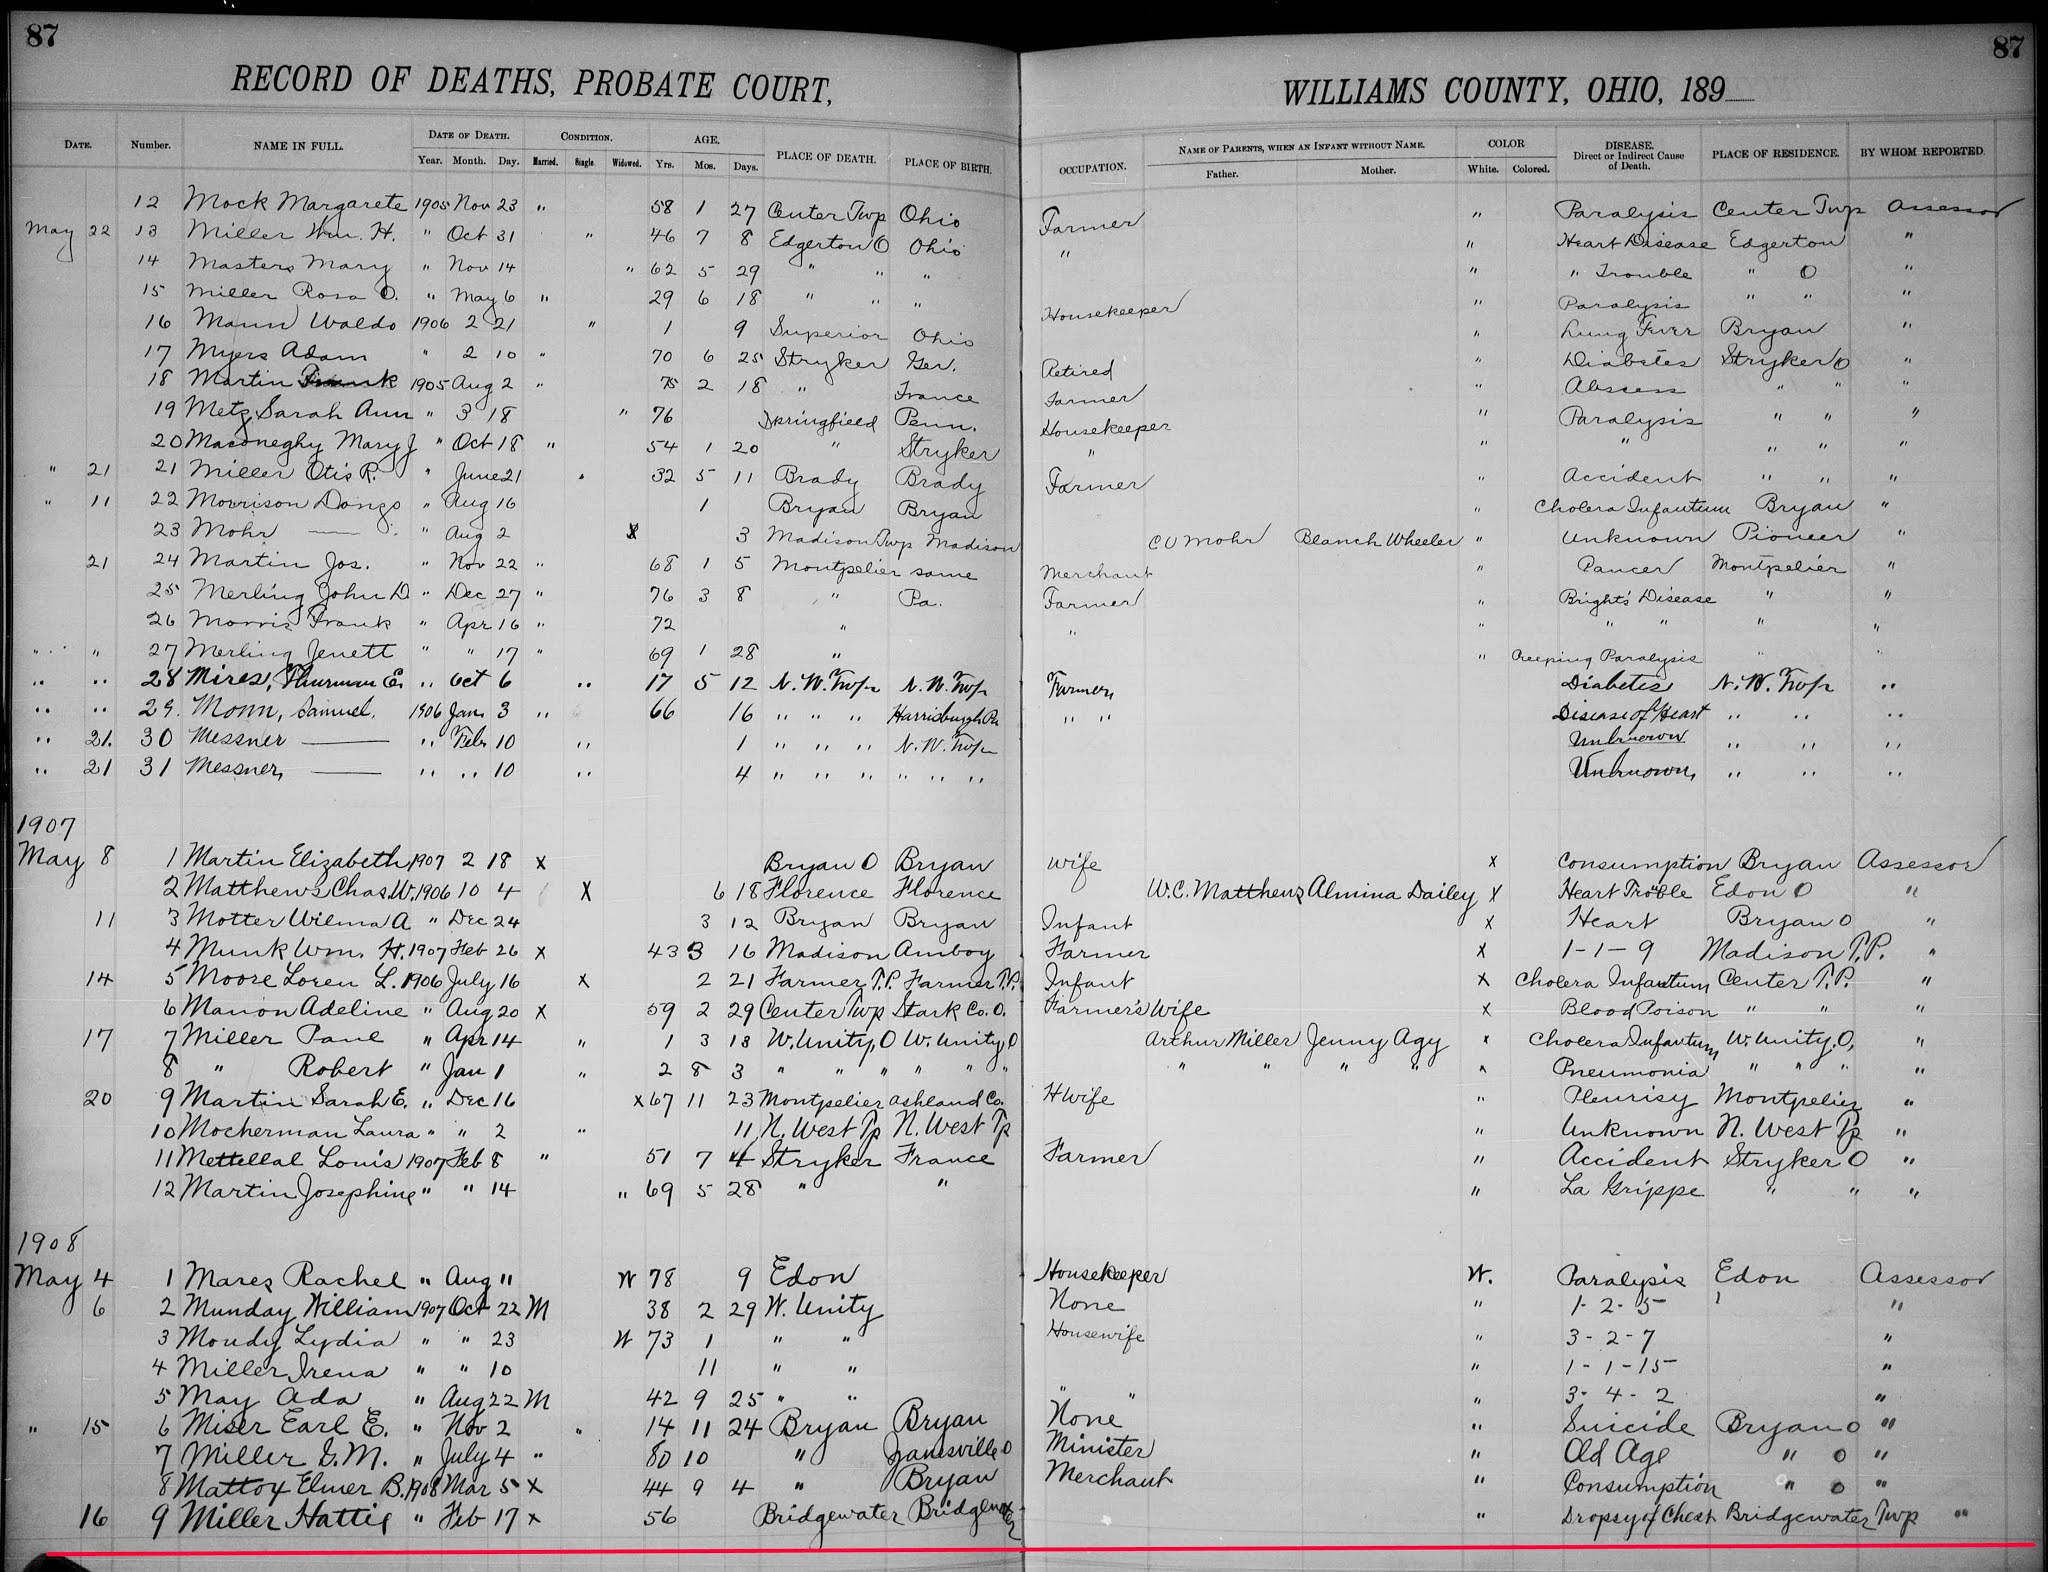 87 87
RECORD OF DEATHS, PROBATE COURT, WILLIAMS COUNTY, OHIO, 189
DATE. Number. NAME IN FULL. DATE OF DEATH. CONDITION. AGE. PLACE OF DEATH. PLACE OF BIRTH. OCCUPATION. NAME OF PARENTS, WHEN AN INFANT WITHOUT NAME. COLOR DISEASE. Direct or Indirect Cause of Death. PLACE OF RESIDENCE. BY WHOM REPORTED.
Year. Month. Day. Married. Single. Widowed. Yrs. Mos. Days. Father. Mother. White. Colored.
12 Mock Margarete 1905 Nov 23 " 58 1 27 Center Twp Ohio Farmer " Paralysis Center Twp Assessor
May 22 13 Miller Wm. H. " Oct 31 " 46 7 8 Edgerton O Ohio " " Heart Disease Edgerton "
14 Masters Mary " Nov 14 " 62 5 29 " " " " " Trouble " O "
15 Miller Rosa O. " May 6 " 29 6 18 " " " Housekeeper " Paralysis " " "
16 Mann Waldo 1906 2 21 " 1 9 Superior Ohio " Lung Fever Bryan "
17 Myers Adam " 2 10 " 70 6 25 Stryker Ger. Retired " Diabetes Stryker O "
18 Martin Frank 1905 Aug 2 " 75 2 18 " France Farmer " Abscess " " "
19 Metz, Sarah Ann " 3 18 " 76 Springfield Penn. Housekeeper " Paralysis " " "
20 Maconeghy Mary J " Oct 18 " 54 1 20 " Stryker " " " " " "
" 21 21 Miller Otis R. " June 21 " 32 5 11 Brady Brady Farmer " Accident " " "
" 11 22 Morrison Dango " Aug 16 1 Bryan Bryan " Cholera Infantum Bryan "
23 Mohr — " Aug 2 X 3 Madison Twp Madison C U Mohr Blanch Wheeler " Unknown Pioneer "
21 24 Martin Jos. " Nov 22 " 68 1 5 Montpelier same Merchant " Cancer Montpelier "
25 Merling John D " Dec 27 " 76 3 8 " Pa. Farmer " Bright's Disease " "
26 Morris Frank " Apr 16 " 72 " " " " " " "
" " 27 Merling Jenett " " 17 " 69 1 28 " " Creeping Paralysis " "
" " 28 Mires, Thurman E. " Oct 6 " 17 5 12 N. W. Twp N. W. Twp Farmer, Diabetes N. W. Twp "
" " 29. Monn, Samuel. 1906 Jan. 3 " 66 16 " " " Harrisburgh Pa " " Disease of Heart " " "
" 21. 30 Messner — " Feb 10 " 1 " " " N. W. Twp Unknown " " "
" 21 31 Messner, — " " 10 " 4 " " " " " " Unknown, " " "
1907
May 8 1 Martin Elizabeth 1907 2 18 X Bryan O Bryan Wife X Consumption Bryan Assessor
2 Matthews Chas W. 1906 10 4 X 6 18 Florence Florence W. C. Matthews Almina Dailey X Heart Trouble Edon O "
11 3 Motter Wilma A " Dec 24 3 12 Bryan Bryan Infant X Heart Bryan O "
4 Munk Wm. H. 1907 Feb 26 X 43 3 16 Madison Amboy Farmer X 1-1-9 Madison T.P. "
14 5 Moore Loren L. 1906 July 16 X 2 21 Farmer T.P. Farmer T.P. Infant X Cholera Infantum Center T.P. "
6 Manon Adeline " Aug 20 X 59 2 29 Center Twp Stark Co. O. Farmer's Wife X Blood Poison " " "
17 7 Miller Paul " Apr 14 " 1 3 13 W. Unity, O W. Unity, O Arthur Miller Jenny Agy X Cholera Infantum W. Unity, O, "
8 " Robert " Jan 1 " 2 8 3 " " " " " " " " " " X Pneumonia " " " "
20 9 Martin Sarah E. " Dec 16 X 67 11 23 Montpelier Ashland Co. H Wife " Pleurisy Montpelier "
10 Mocherman Laura " " 2 " 11 N. West Tp N. West Tp " Unknown N. West Tp "
11 Mettellal Louis 1907 Feb 8 " 51 7 4 Stryker France Farmer " Accident Stryker O "
12 Martin Josephine " " 14 " 69 5 28 " " " La Grippe " " "
1908
May 4 1 Mares Rachel " Aug 11 W 78 9 Edon Housekeeper W. Paralysis Edon Assessor
6 2 Munday William 1907 Oct 22 M 38 2 29 W. Unity None " 1-2-5 "
3 Moudy Lydia " " 23 W 73 1 " " Housewife " 3-2-7 "
4 Miller Irena " " 10 11 " " " 1-1-15 "
5 May Ada " Aug 22 M 42 9 25 " " " " " 3-4-2 "
" 15 6 Miser Earl E. " Nov 2 " 14 11 24 Bryan Bryan None " Suicide Bryan O "
7 Miller G. M. " July 4 " 80 10 " Janesville O Minister " Old Age " O "
8 Mattox Elmer B. 1908 Mar 5 X 44 9 4 " Bryan Merchant " Consumption " O "
16 9 Miller Hattie " Feb 17 X 56 Bridgewater Bridgewater " Dropsy of Chest Bridgewater Twp "